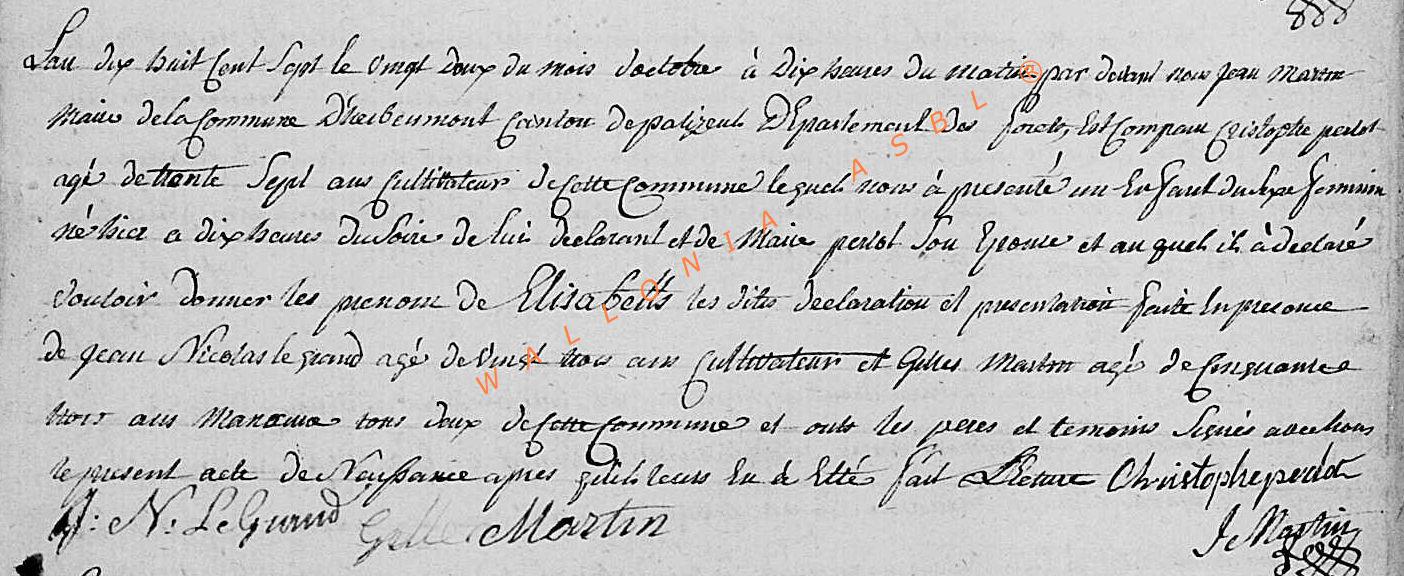 L'an dix huit Cent Sept le vingt deux du mois doctobre à Dix heures du matin par devant nous Jean Martin
Maire de la Commune D'herbeumont Canton de palizeul DEpartement des forets, Est Comparu Cristophe perlot
agé de trente Sept ans Cultivateur de Cette Commune lequel nous à presenté un Enfant du Sexe feminin
né hier a dix heures du Soire de lui declarant et de Marie perlot Son Epouse et au quel il à declaré
vouloir donner les prenom de Elisabeth les dites declaration et presentation faite En presence
de jean Nicolas le grand agé de vingt trois ans Cultivateur et Gilles Martin agé de Cinquante
trois ans Manœuvre tous deux de Cette Commune et ont les peres et temoins Signés avec nous
le present acte de Naissance apres qu'il leurs En à Etté fait Lecture Christophe perlot
J: N: LeGrand Gilles Martin J Martin
WALLONIA ASBL ®